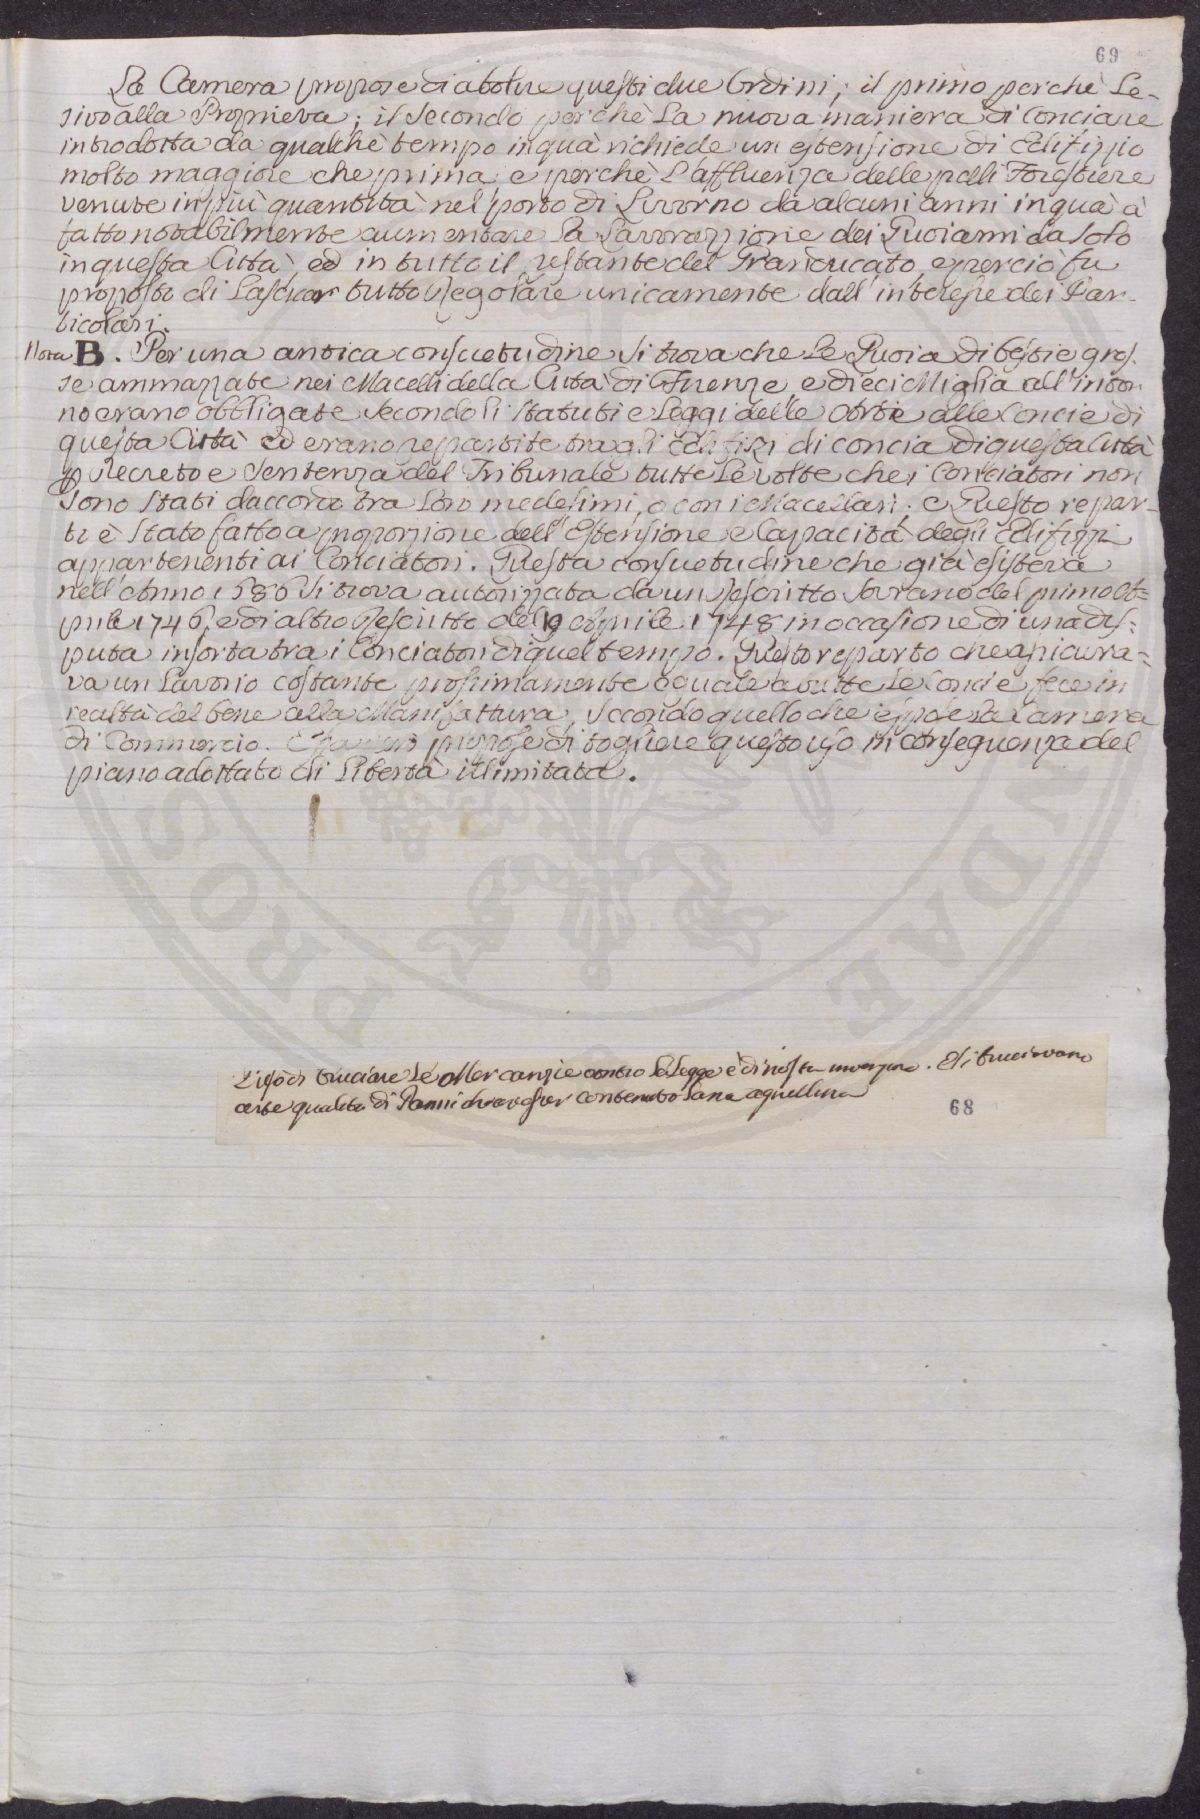 69
La Camera propose di abolire questi due Ordini; il primo perchè Le-
sivo alla Proprieta; il Secondo perchè La nuova maniera di Conciare
introdotta da qualchè tempo in quà richiede un estensione di Edifizio
molto maggiore che prima e perchè L'affluenza delle pelli Forestiere
venute in più quantità nel porto di Livorno da alcuni anni in quà à
fatto notabilmente aumentare La Lavorazzione dei Quoiami da Solo
in questa Città, ed in tutto il restante del Granducato, e perciò fu
proposto di Lasciar tutto Regolare unicamente dall'interesse dei Par-
ticolari.
Nota B. Per una antica consuetudine si trova che Le Quoia di bestie gros-
se ammazzate nei Macelli della Città di Firenze e dieci Miglia all'intor
no erano obbligate Secondo li Statuti e Leggi delle Arti alle Concie di
questa Città ed erano repartite tra gli Edifizi di concia di questa Città
p Decreto e Sentenza del Tribunale tutte Le volte che i Conciatori non
sono Stati daccordo tra Loro medesimi, o con i Macellari; e Questo repar-
to è Stato fatto a proporzione dell'Estensione e Capacità degli Edifizzi
appartenenti ai Conciatori. Questa consuetudine che già esisteva
nell'Anno 1586 si trova autorizzata da un Rescritto Sovrano del primo A-
prile 1746, e di altro Rescritto del 9 Aprile 1748 in occasione di una dis-
puta insorta tra i Conciatori di quel tempo. Questo reparto che assicura-
va un Lavorio costante prossimamente eguale a tutte Le Concie fece in
realtà del bene alla Manifattura, Secondo quello che espose La Camera
di Commercio. propose di togliere questo uso in conseguenza del
piano adottato di Libertà illimitata.
L'uso di bruciare Le Mercanzie contro La Legge è di nostra invenzione. Si bruciavano
certe qualità di Panni che avesser contenuto Lana agnellina
68
PROS
VDAE